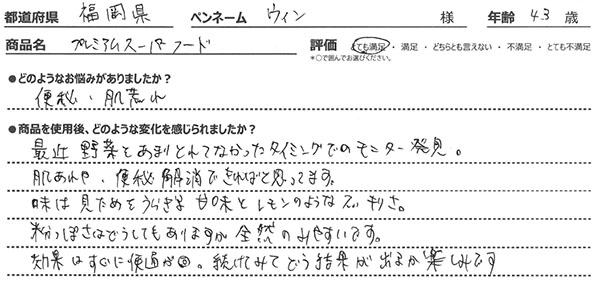 都道府県 福岡県 ペンネーム ウィン 様 年齢 43 歳
商品名 プレミアムスーパーフード 評価 とても満足・満足・どちらとも言えない・不満足・とても不満足
*○で囲んでお選びください。
●どのようなお悩みがありましたか?
便秘、肌荒れ
●商品を使用後、どのような変化を感じられましたか?
最近 野菜をあまりとれてなかったタイミングでのモニター発見。
肌あれや、便秘解消できればと思ってます。
味は見ためをうらぎる 甘味とレモンのような
粉っぽさはどうしてもありますが 全然のみやすいです。
効果はすぐに便通が 続けてみてどう結果が出るか楽しみです